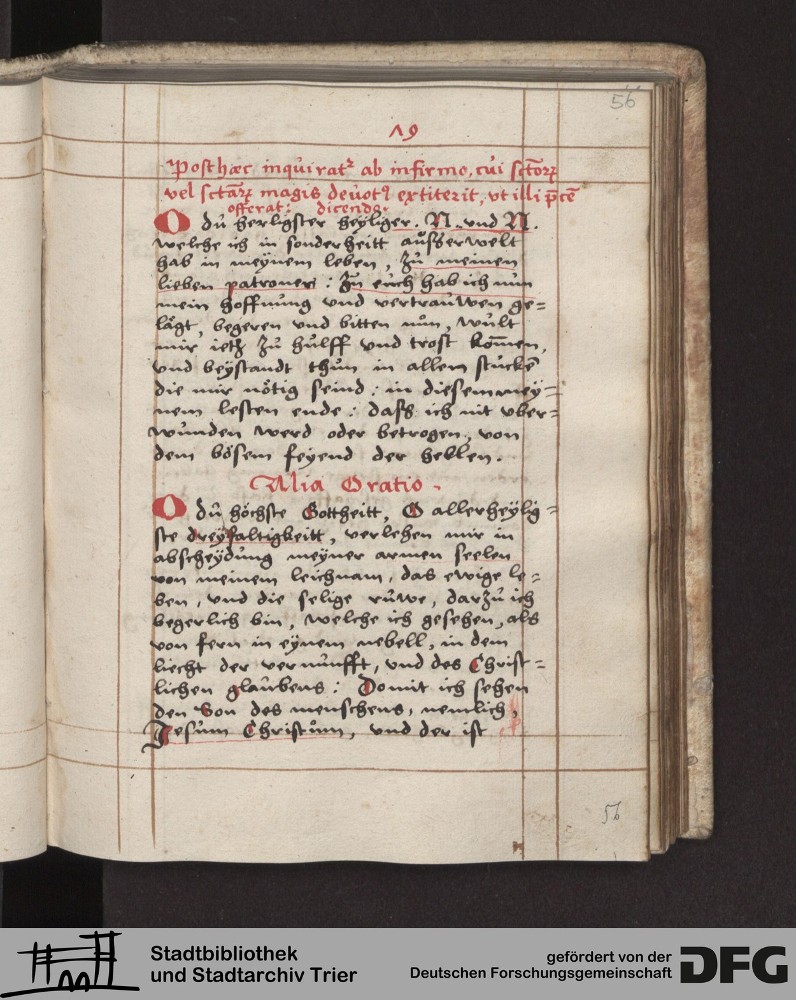 56
19
Post hæc inquirat² ab infirmo, cui sctōꝝ
vel sctāꝝ magis deuot⁹ extiterit, vt illi p̄cē
offerat: dicendo.
O dů herligster heÿliger. N. vnd N.
welche ich in sonderheitt aůsserwelt
hab in meÿnem leben, Zů meinen
lieben patronen: Zů eůch hab ich nun
mein hoffnůng vnd vertraůwen ge=
lägt, begeren vnd bitten nůn, wůlt
mir ietz zů hůlff vnd trost kom̄en,
vnd beÿstandt thůn in allem stuckē
die mir nötig seind: in diesem meÿ=
nem lesten ende: dass ich nit vber=
wůnden werd oder betrogen, von
dem bösem feÿend der hellen.
Alia Oratio.
O dů höchste Gottheitt, O allerheÿlig=
ste dreÿfaltigkeitt, verlehen mir in
abscheÿdůng meÿner armen seelen
von meinem leichnam, das ewige le=
ben, vnd die selige růwe, darzů ich
begerlich bin, welche ich gesehen, als
von fern in eÿnem nebell, in dem
liecht der vernůnfft, vnd des Christ=
lichen glaůbens: Domit ich sehen
den Son des menschens, nemlich,
Jesům Christům, vnd der ist
56
Stadtbibliothek
und Stadtarchiv Trier
gefördert von der
Deutschen Forschungsgemeinschaft
DFG